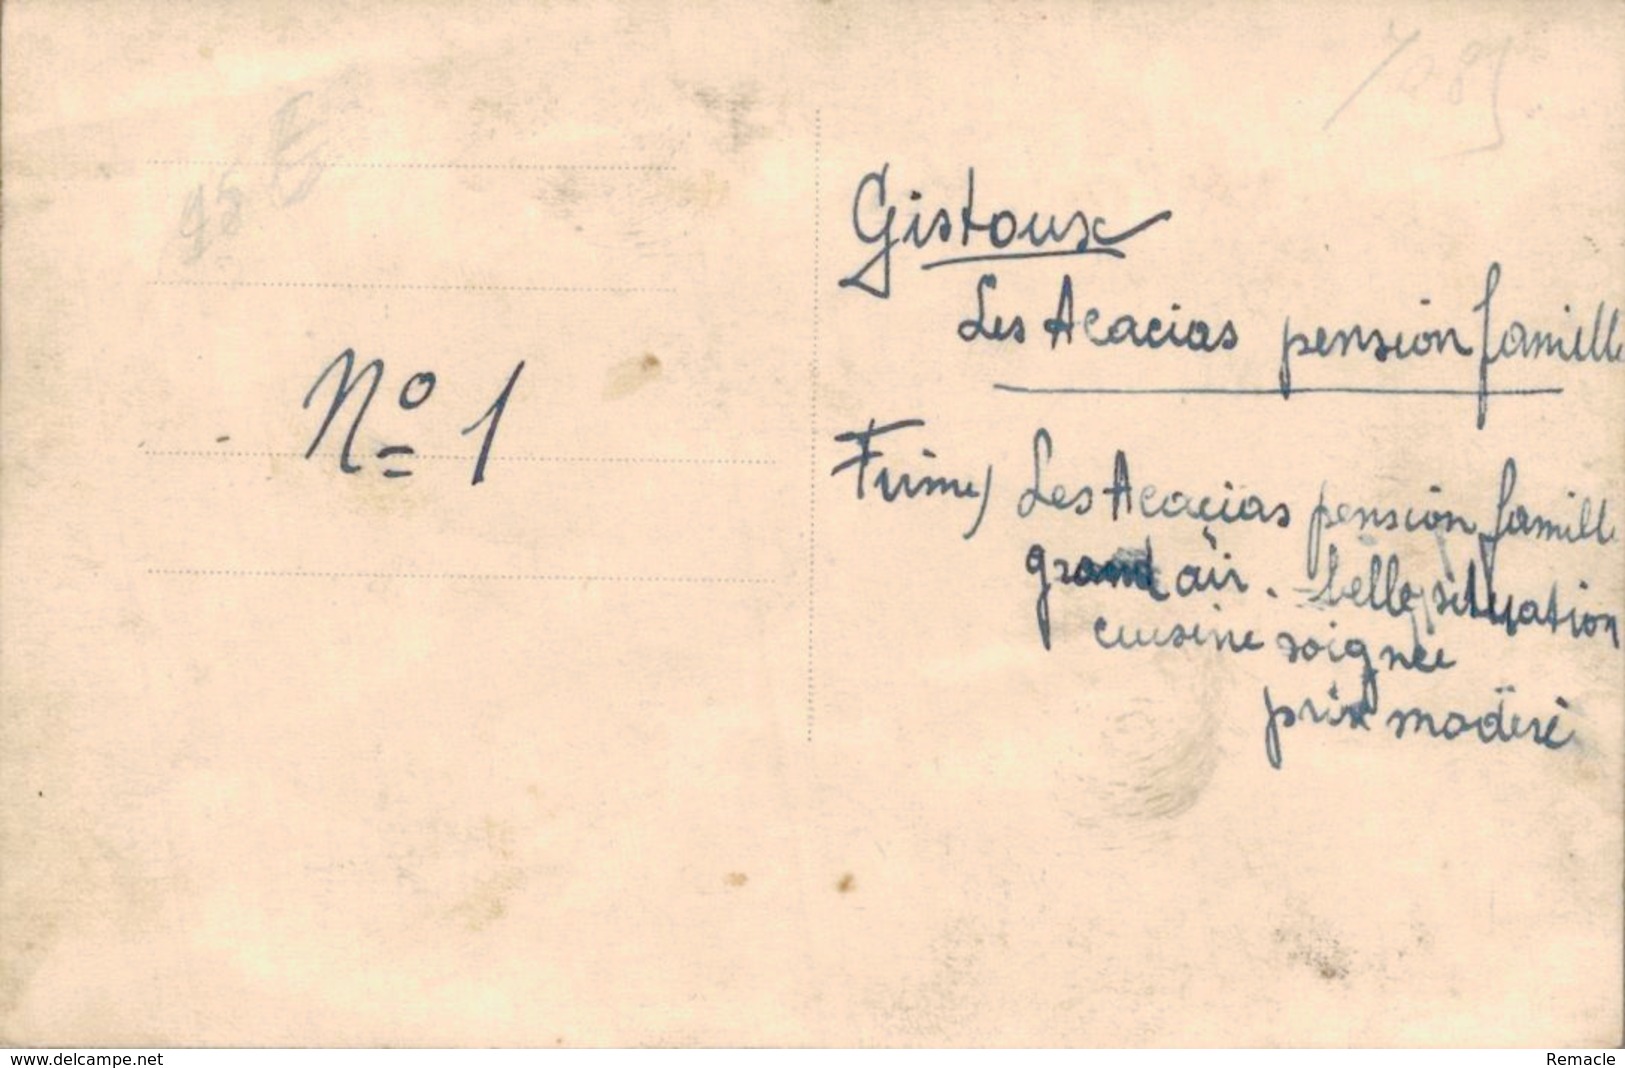 95 E
Nº 1
Gistoux
Les Acacias pension famille
Les Acacias pension famill
grand air. - belle situation
cuisine soignée
prix modéré
www.delcampe.net
Remacle